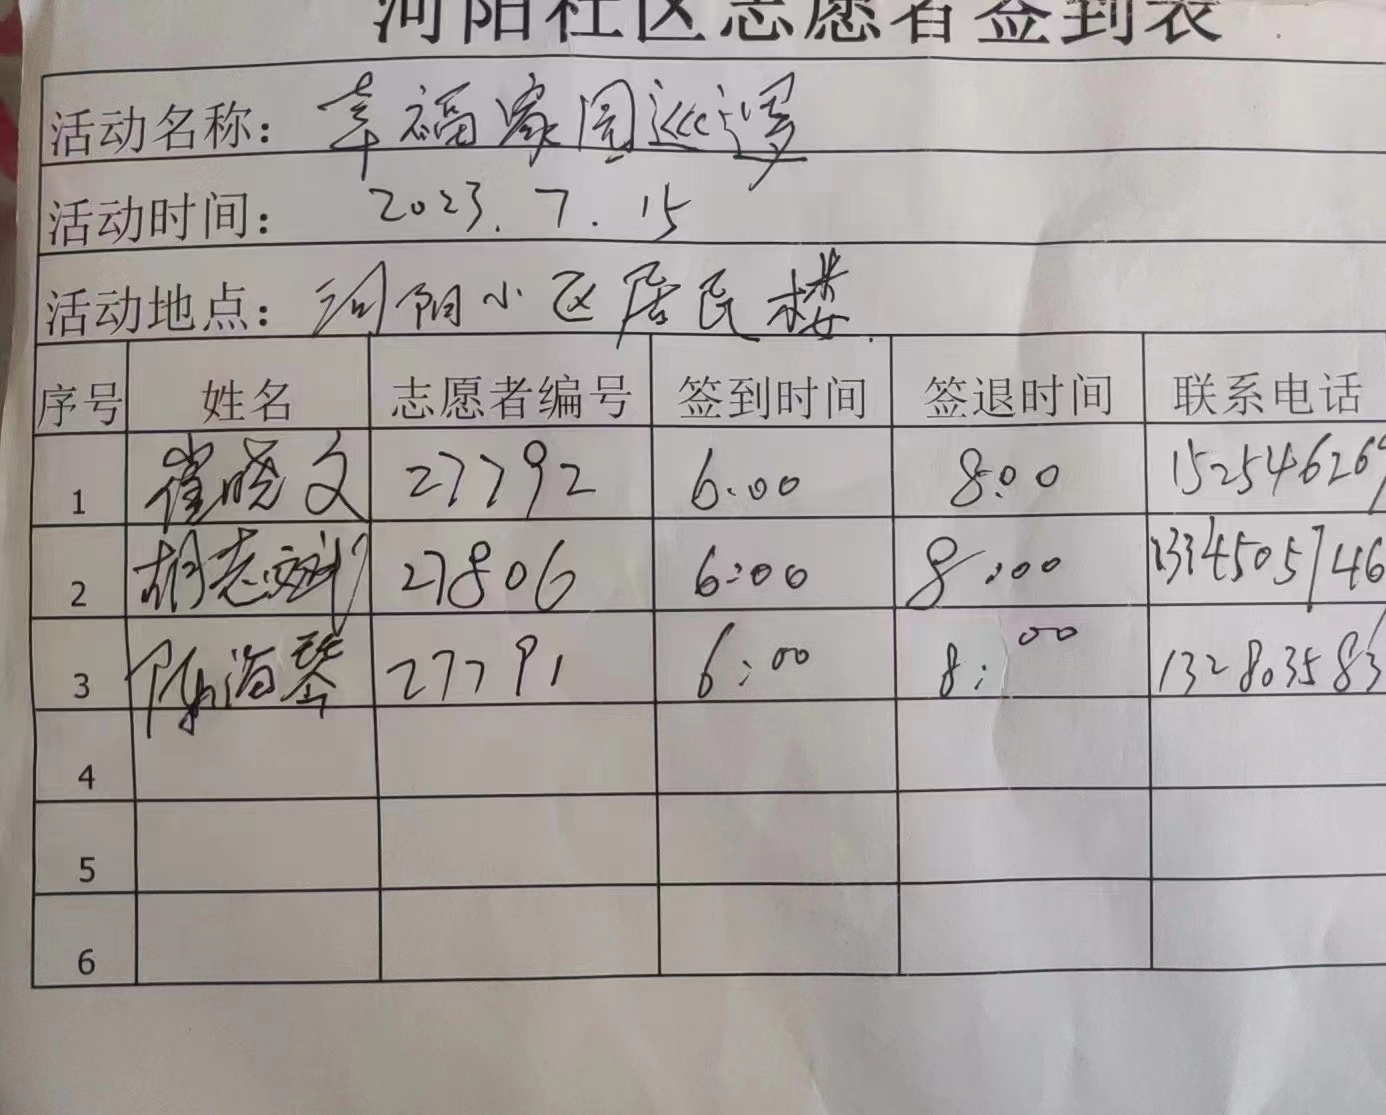 河阳社区志愿者签到表
活动名称：幸福家园巡逻
活动时间：2023.7.15
活动地点：河阳小区居民楼
序号 姓名 志愿者编号 签到时间 签退时间 联系电话
1 崔晓文 27792 6:00 8:00 152546269
2 胡志斌 27806 6:00 8:00 1334505746
3 陈海琴 27791 6:00 8:00 132803583
4
5
6